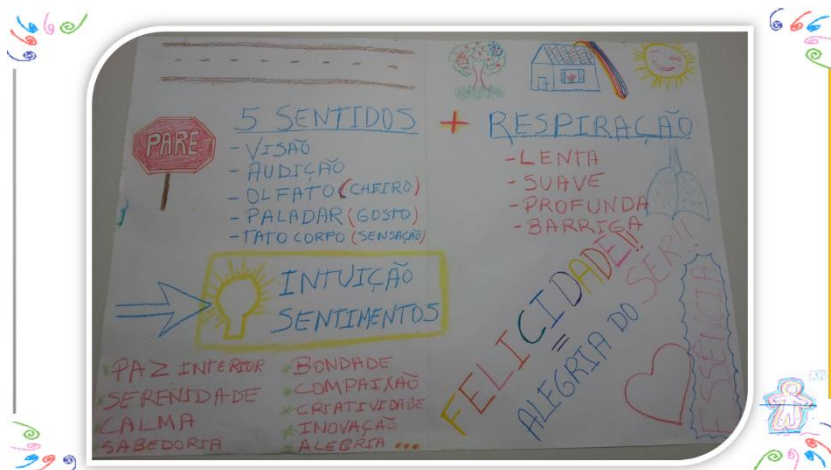 PARE
5 SENTIDOS + RESPIRAÇÃO
- VISÃO
- AUDIÇÃO
- OLFATO (CHEIRO)
- PALADAR (GOSTO)
- TATO CORPO (SENSAÇÃO)
- LENTA
- SUAVE
- PROFUNDA
- BARRIGA
INTUIÇÃO
SENTIMENTOS
* PAZ INTERIOR
* SERENIDADE
* CALMA
* SABEDORIA
* BONDADE
* COMPAIXÃO
* CRIATIVIDADE
* INOVAÇÃO
* ALEGRIA ...
FELICIDADE!!
=
ALEGRIA DO SER!!
ESSÊNCIA